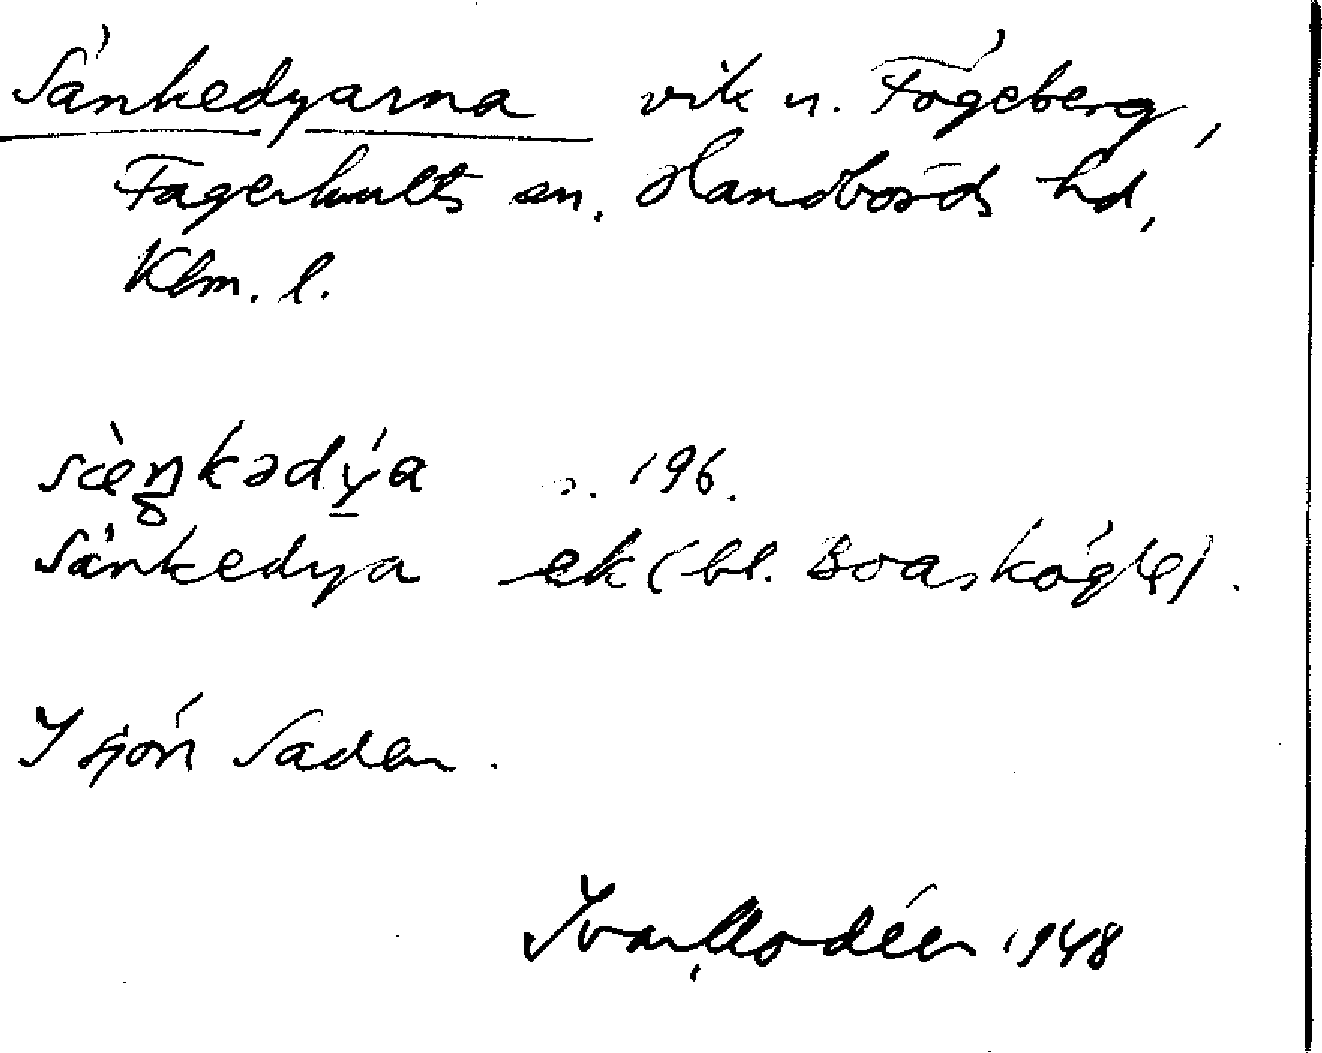 Sänkedyarna vik n. Fågeberg,
Fagerhults sn. Handbörds hd,
Klm. l.
sæ̀ŋkədýa s. 196.
Sänkedya ek (bl. Boaskögle).
I sjön Saden.
Ivar Modéer 1948